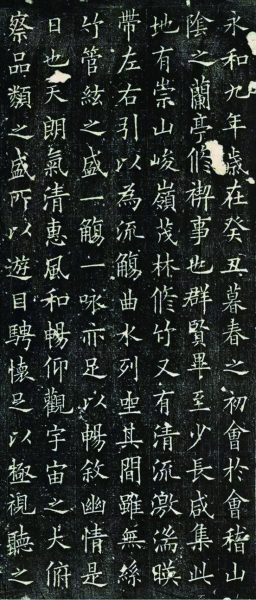 永和九年歲在癸丑暮春之初會於會稽山
陰之蘭亭脩禊事也群賢畢至少長咸集此
地有崇山峻嶺茂林脩竹又有清流激湍暎
帶左右引以為流觴曲水列坐其間雖無絲
竹管絃之盛一觴一咏亦足以暢敘幽情是
日也天朗氣清惠風和暢仰觀宇宙之大俯
察品類之盛所以遊目騁懷足以極視聽之